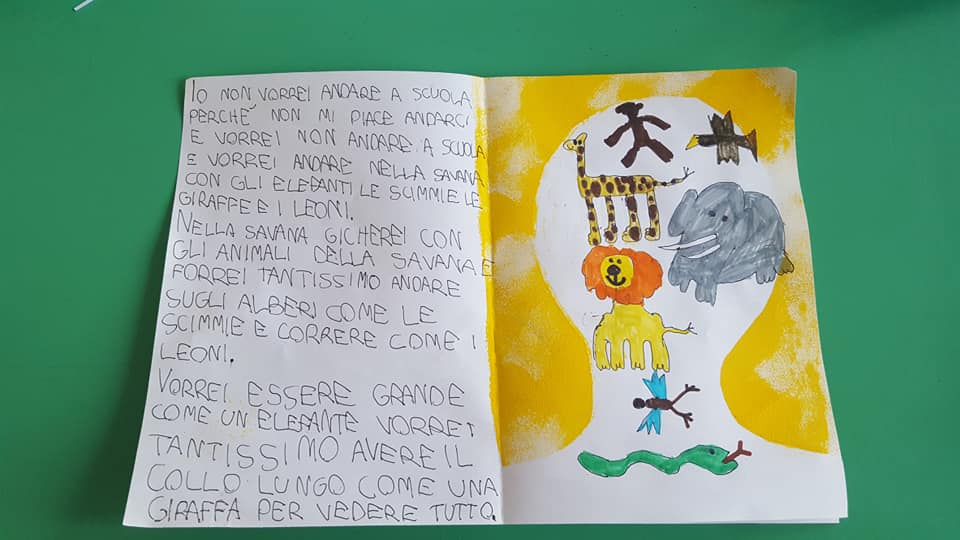 IO NON VORREI ANDARE A SCUOLA
PERCHÉ NON MI PIACE ANDARCI
E VORREI NON ANDARE A SCUOLA
E VORREI ANDARE NELLA SAVANA
CON GLI ELEFANTI LE SCIMMIE LE
GIRAFFE E I LEONI.
NELLA SAVANA GICHEREI CON
GLI ANIMALI DELLA SAVANA E
FORREI TANTISSIMO ANDARE
SUGLI ALBERI COME LE
SCIMMIE E CORRERE COME I
LEONI.
VORREI ESSERE GRANDE
COME UN ELEFANTE VORREI
TANTISSIMO AVERE IL
COLLO LUNGO COME UNA
GIRAFFA PER VEDERE TUTTO.